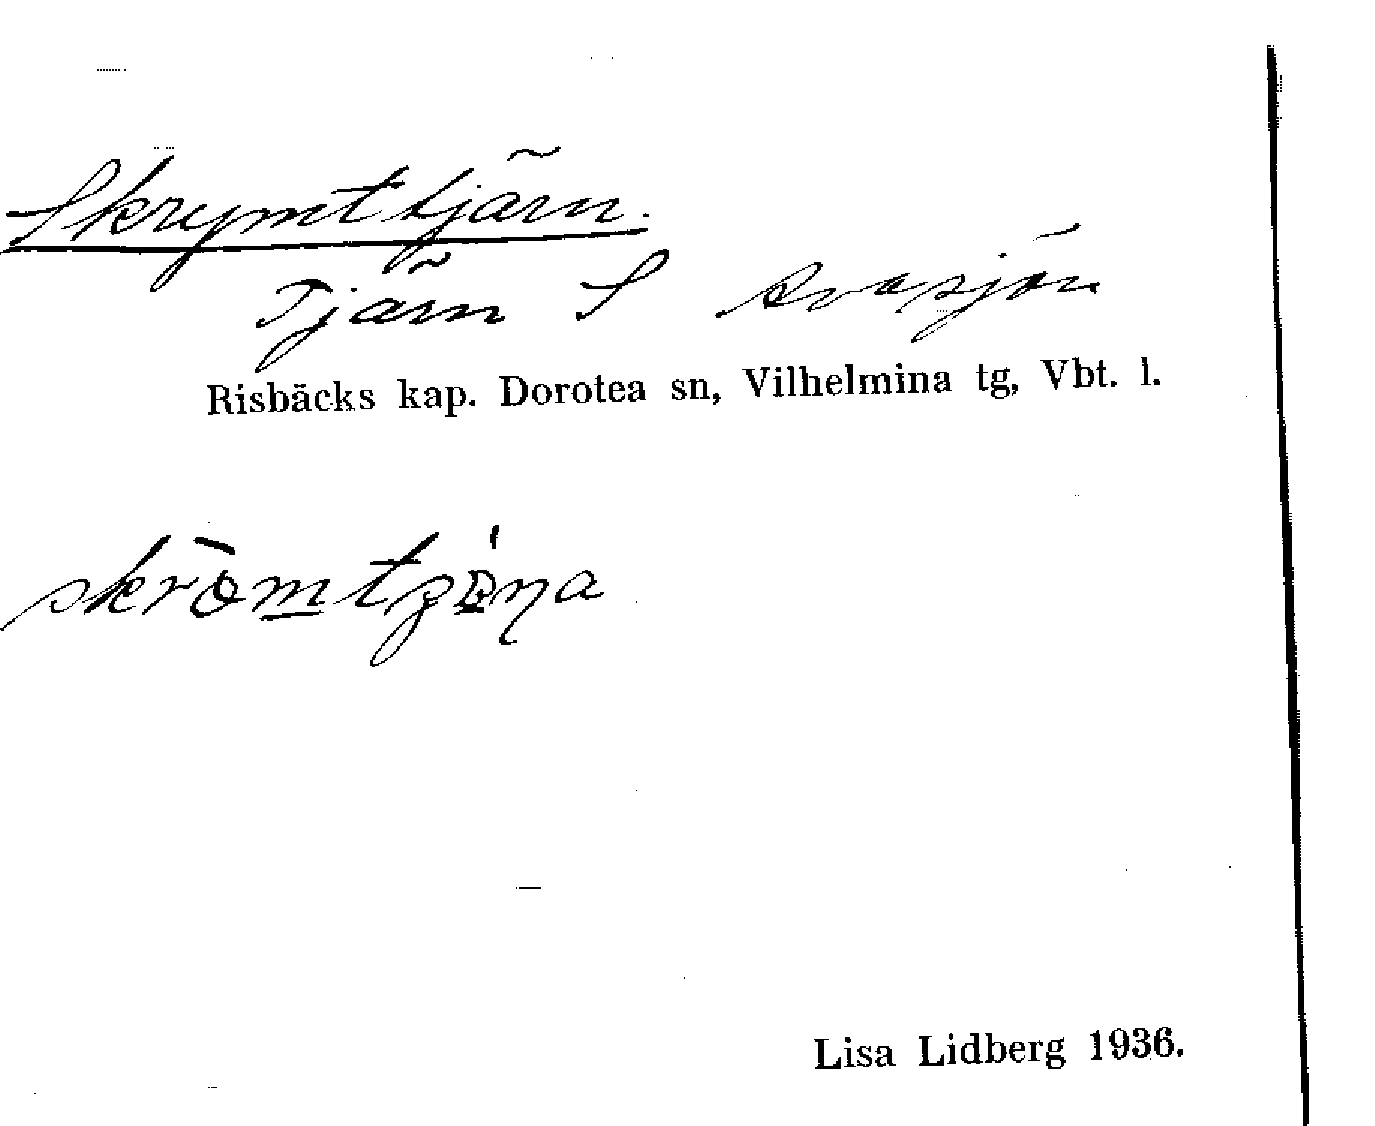 Skrymttjärn.
Tjärn S Avasjön
Risbäcks kap. Dorotea sn, Vilhelmina tg, Vbt. l.
Lisa Lidberg 1936.